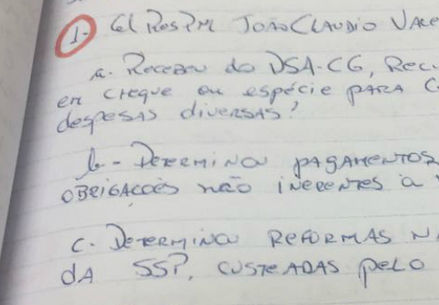 1- Cel Res PM João Claudio Vale
a. Recebeu do DSA-CG, Rec
em cheque ou espécie para c
despesas diversas?
b - Determinou pagamentos
obrigações não inerentes a
c. Determinou reformas n
da SSP, custeadas pelo